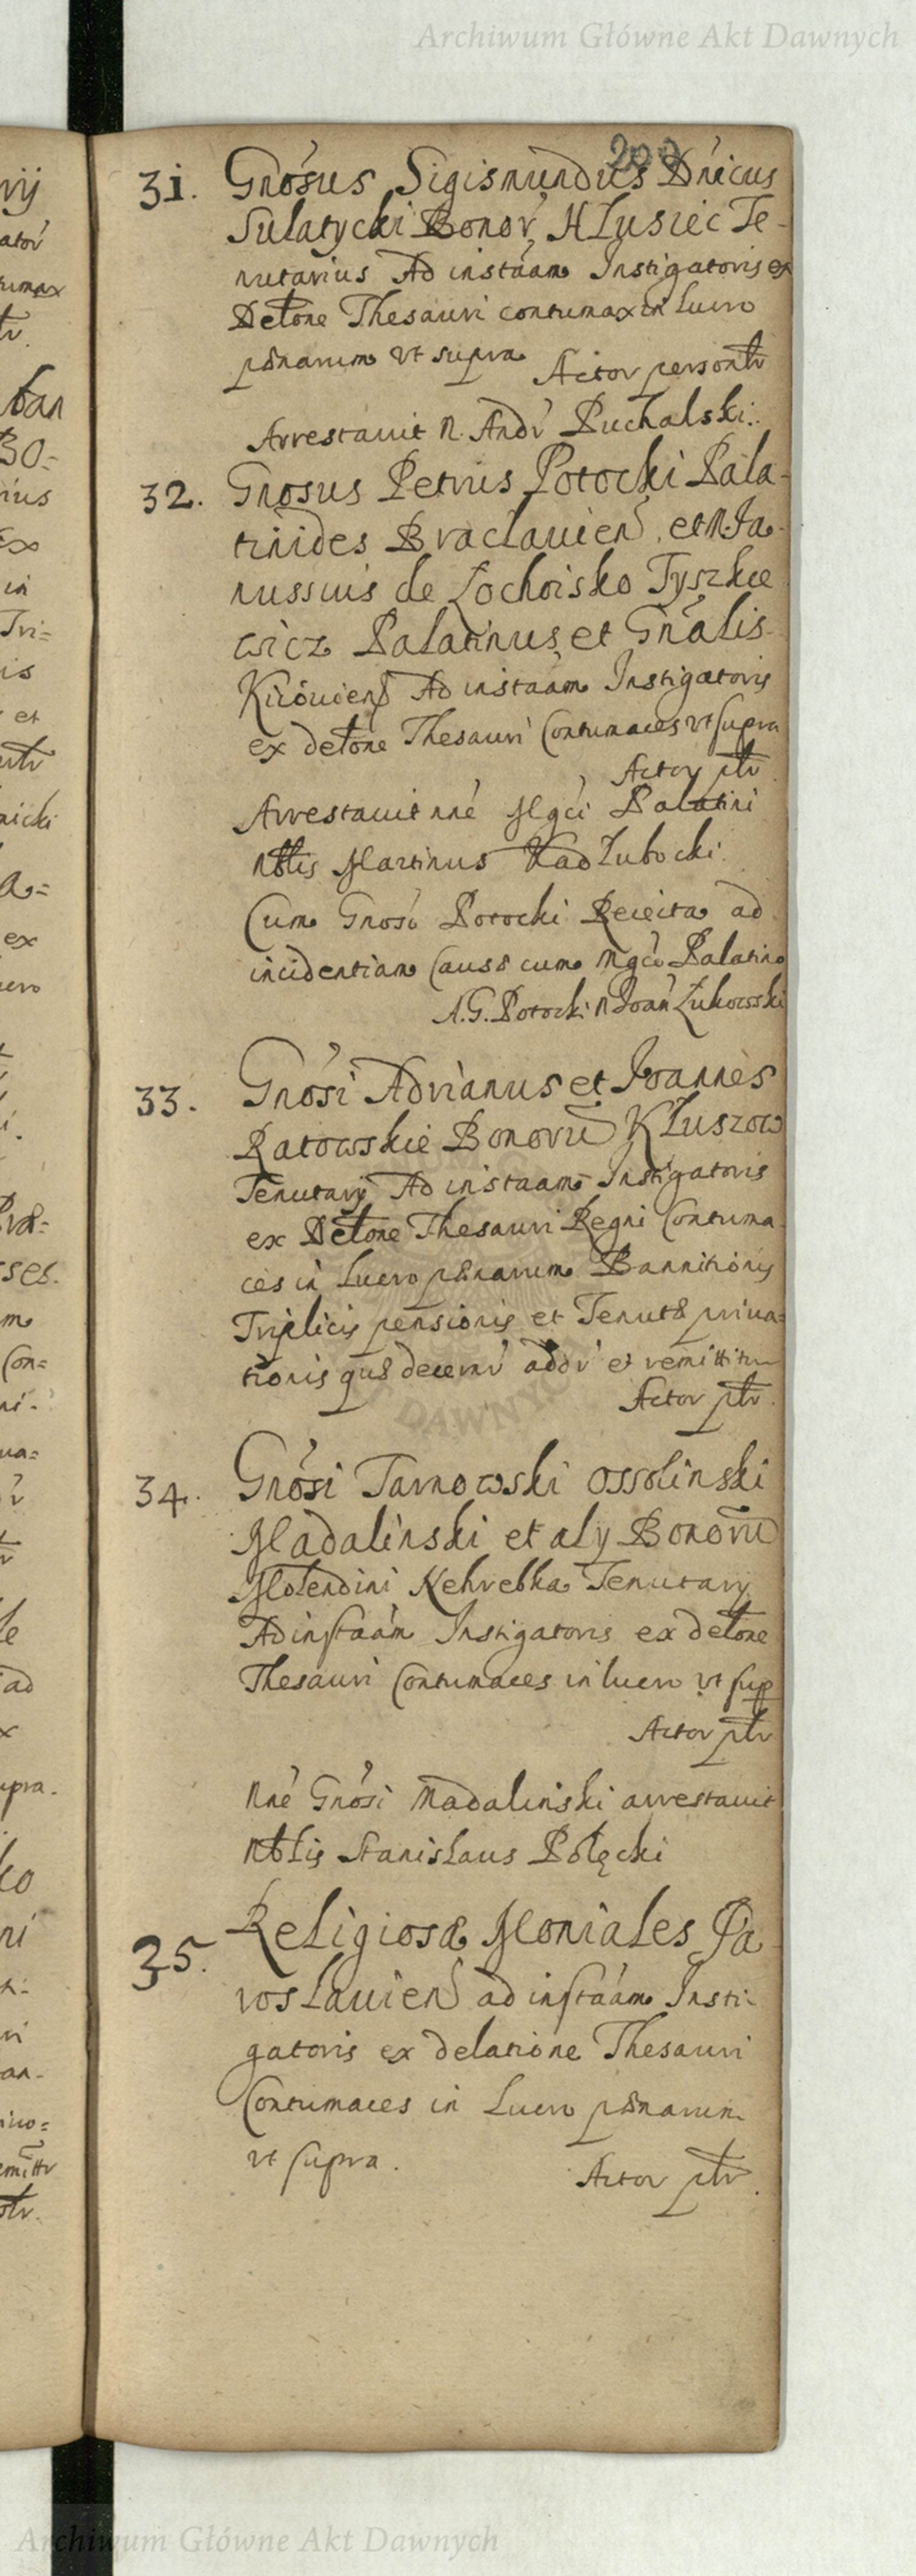 Archiwum Główne Akt Dawnych
200
31. Gnósus Sigismundus Dnicus
Sulatycki Bonor Hłusiec Te-
nutarius Ad instaam Instigatoris ex
Detone Thesauri contumax in Lucro
pænarum vt supra Actor personlr
Arrestauit N. Andr Puchalski
32. Gnosus Petrus Potocki Pala-
tinides Braclauien et N. Ja-
nussius de Lochoisko Tyszkie
wicz Palatinus et Gnalis
Kiiouien Ad instaam Instigatoris
ex detone Thesauri Contumaces vt supra
Actor plr
Arrestauit nné Mgci Palatini
Nblis Martinus Kadłubocki
Cum Gnoso Potocki Reiecta ad
incidentiam Causæ cum Mgco Palatino
A. G. Potocki N Joan Zukowski
33. Gnósi Adrianus et Joannes
Ratowskie Bonorū Kłuszow
Tenutarij Ad instaam Instigatoris
ex Detone Thesauri Regni Contuma
ces in Lucro pænarum Bannitionis
Triplicis pensionis et Tenutæ priua=
tionis quæ decerni addi et remittitur
Actor plr.
34. Gnósi Tarnowski Ossolinski
Madalinski et alij Bonorū
Molendini Nehrebka Tenutarij
Ad instaam Instigatoris ex detone
Thesauri Contumaces in lucro vt sup
Actor plr
Nné Gnósi Madalinski arrestauit
Nblis Stanislaus Połęcki
35. Religiosæ Moniales Ja
roslauien ad instaam Insti-
gatoris ex delatione Thesauri
Contumaces in Lucro pænarum
vt supra. Actor plr.
Archiwum Główne Akt Dawnych